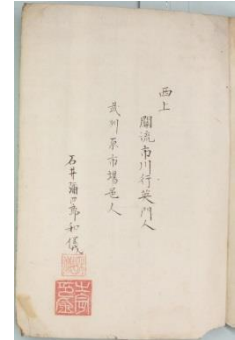 西上
関流市川行英門人
武州原市場邑人
石井弥四郎和儀